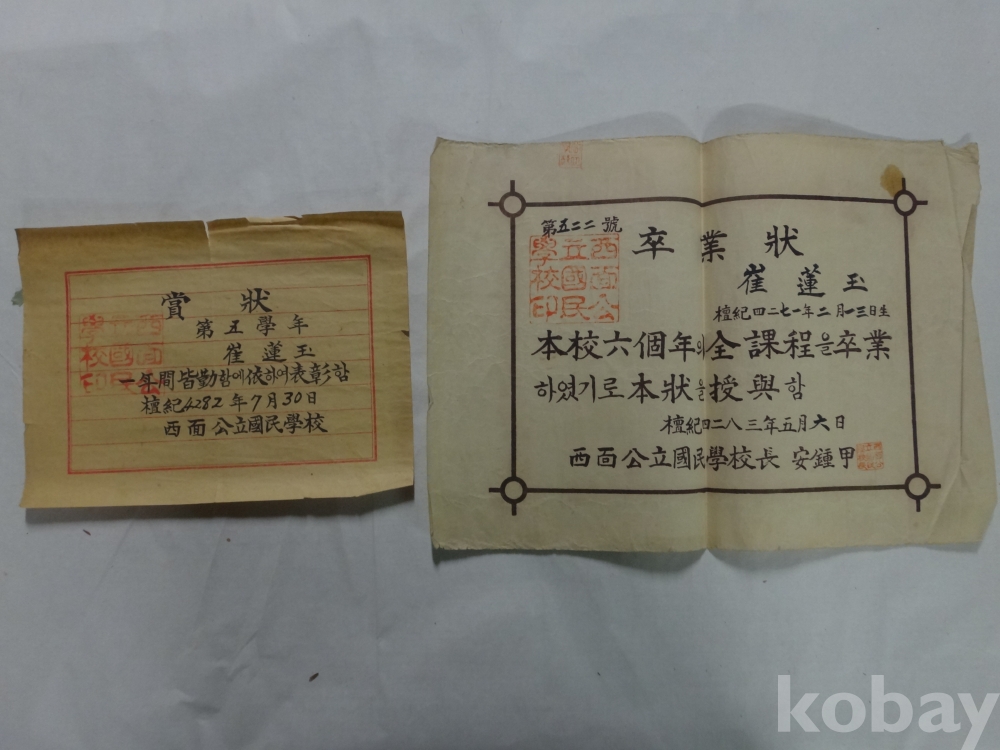 賞狀
第五學年
崔蓮玉
一年間皆勤함에依하여表彰함
檀紀4282年7月30日
西面公立國民學校
西面公
立國民
學校印
第五二二號
卒業狀
崔蓮玉
檀紀四二七一年二月一三日生
本校六個年의全課程을卒業
하였기로本狀을授與함
檀紀四二八三年五月六日
西面公立國民學校長 安鍾甲
西面公
立國民
學校印
kobay